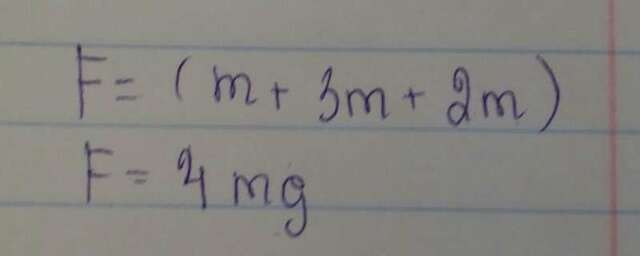 F = (m + 3m + 2m)
F = 4 mg